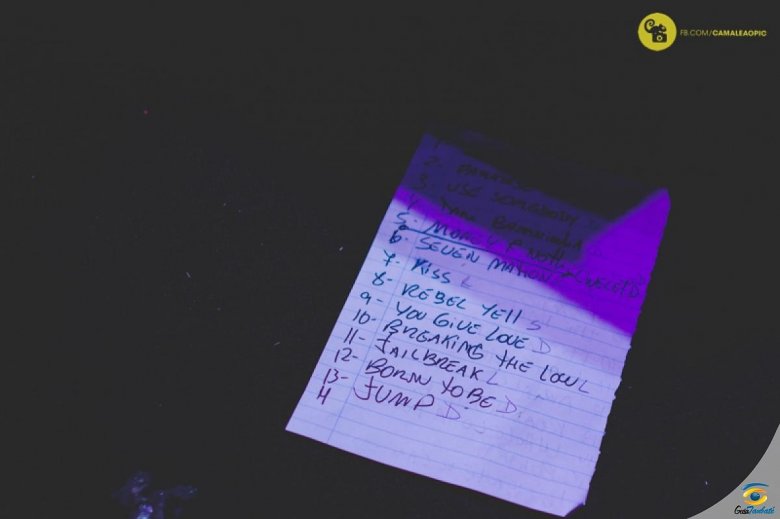 FB.COM/CAMALEAOPIC
2-
3- USE SOMEBODY
4-
5- MONEY
6- SEVEN NATION
7- KISS L
8- REBEL YELL S
9- YOU GIVE LOVE D
10- BREAKING THE LOW L
11- JAILBREAK L
12- BORN TO BE D
13- JUMP D
14
GuiaTaubaté